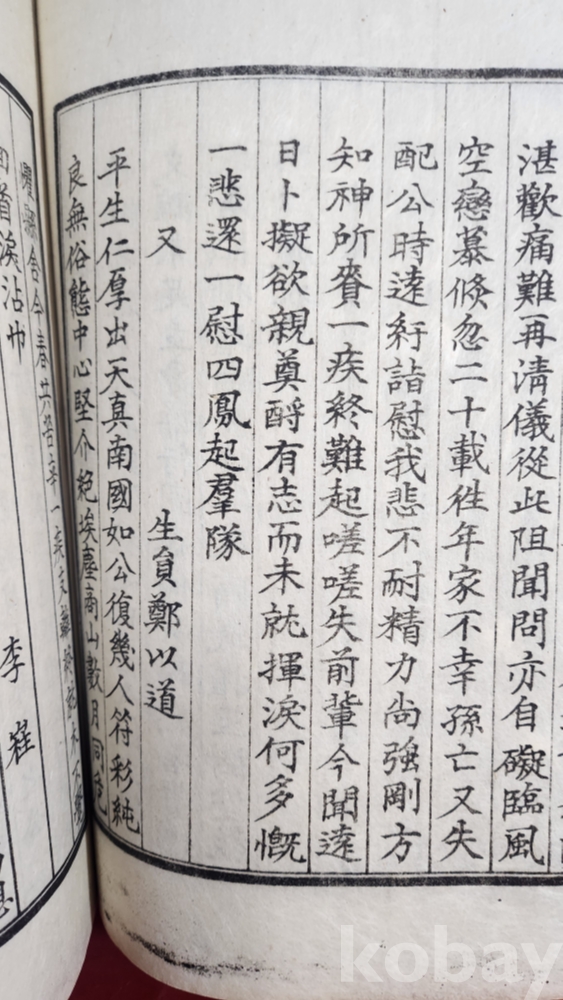 湛歡痛難再淸儀從此阻聞問亦自礙臨風
空戀慕倐忽二十載徃年家不幸孫亡又失
配公時遠紆詣慰我悲不耐精力尙強剛方
知神所賚一疾終難起嗟嗟失前輩今聞遠
日卜擬欲親奠酹有志而未就揮淚何多慨
一悲還一慰四鳳起羣隊
又
生員鄭以道
平生仁厚出天真南國如公復幾人符彩純
良無俗態中心堅介絶埃塵商山數月同
舍今春共
淚沾巾
李
kobay